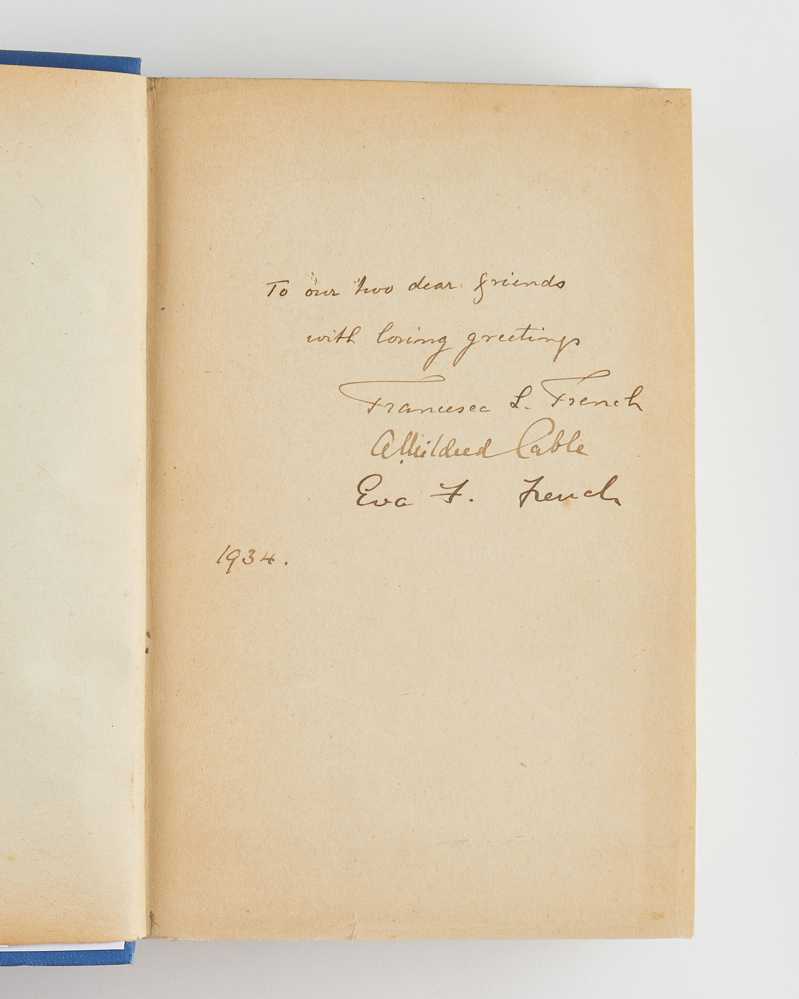 To our two dear friends
with loving greetings
Francesca L. French
A. Mildred Cable
Eva F. French
1934.